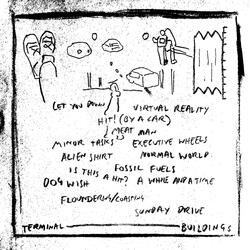 LET YOU DOWN VIRTUAL REALITY
HIT! (BY A CAR)
MEAT MAN
MINOR TASKS EXECUTIVE WHEELS
ALIEN SHIRT NORMAL WORLD
FOSSIL FUELS
IS THIS A HIT? A WHILE AND A TIME
DOG WISH
FLOUNDERING/COASTING
SUNDAY DRIVE
TERMINAL BUILDINGS